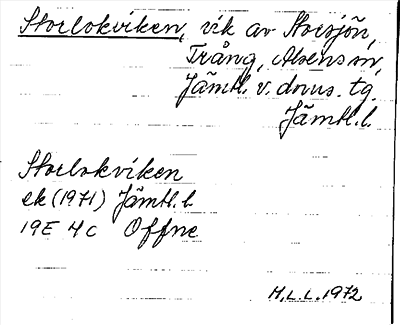 Storlokviken, vik av Storsjön,
Trång, Alsens sn,
Jämtl. v. doms. tg.
Jämtl. l.
Storlokviken
ek (1971) Jämtl. l
19E 4c Offne
H.L.L. 1972